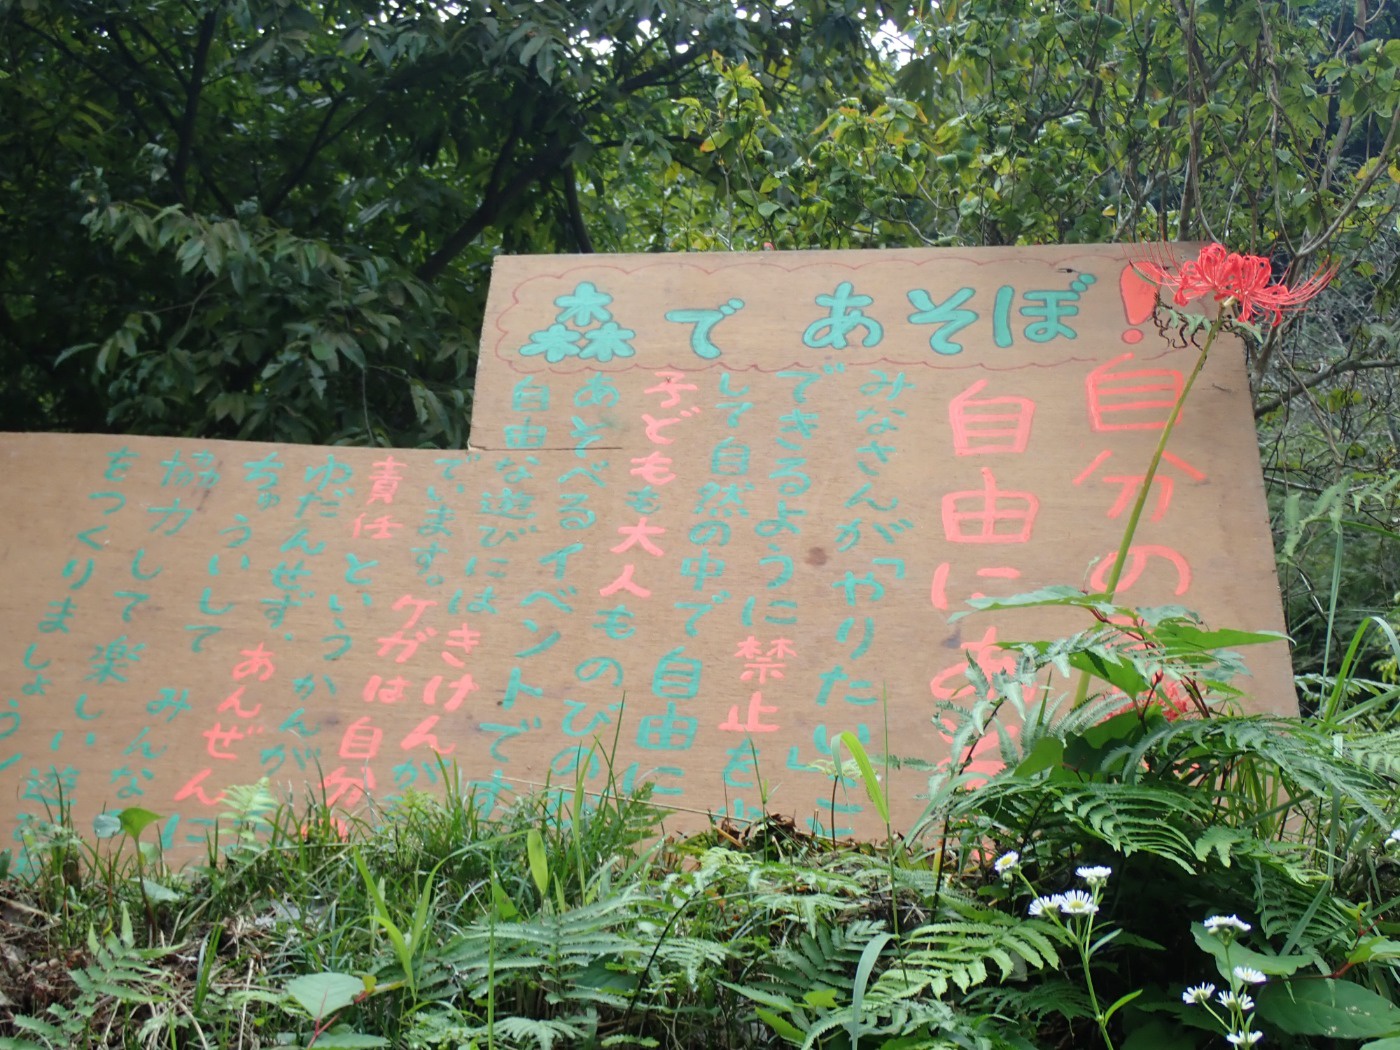 森であそぼ!
自分の
自由に
みなさんが「やりたい」こ
できるように禁止を
して自然の中で自由に
子どもも大人ものびの
あそべるイベントです
自由な遊びにはきけんが
でいます。ケガは自分
責任というかんが
ゆだんせず、あんぜんに
ちゅういして みんな
協力して楽しい遊
をつくりましょう